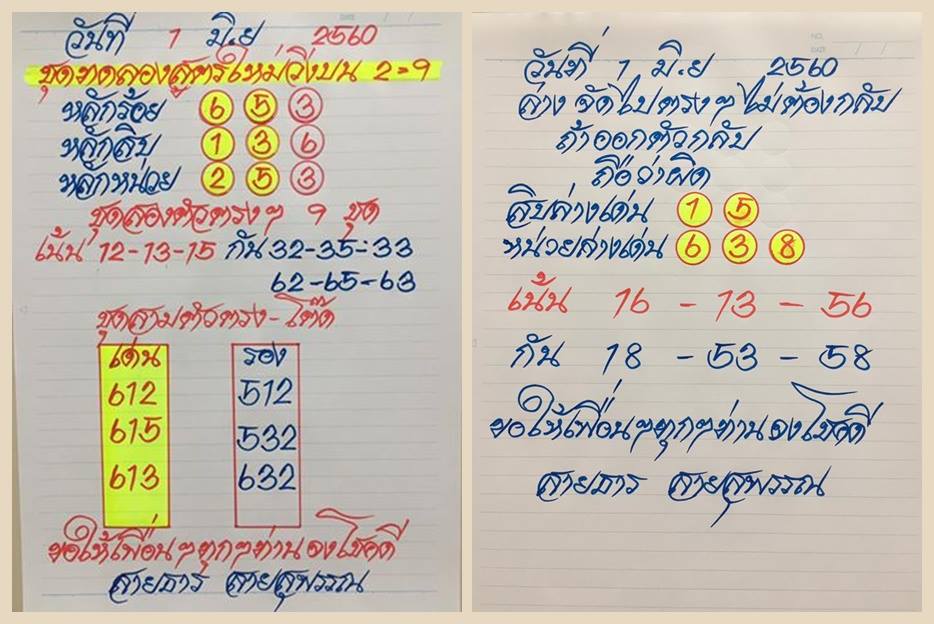 วันที่ 1 มิ.ย 2560
ชุดทดลองสูตรใหม่วิ่งบน 2=9
หลักร้อย 6 5 3
หลักสิบ 1 3 6
หลักหน่วย 2 5 3
ชุดสองตัวตรงๆ 9 ชุด
เน้น 12-13-15 กัน 32-35-33
62-65-63
ชุดสามตัวตรง-โต๊ด
เด่น รอง
612 512
615 532
613 632
ขอให้เพื่อนๆทุกๆท่านจงโชคดี
สายธาร สายสุพรรณ
วันที่ 1 มิ.ย 2560
ล่าง จัดไปตรงๆ ไม่ต้องกลับ
ถ้าออกตัวกลับ
ถือว่าผิด
สิบล่างเด่น 1 5
หน่วยล่างเด่น 6 3 8
เน้น 16 - 13 - 56
กัน 18 - 53 - 58
ขอให้เพื่อนๆทุกๆท่านจงโชคดี
สายธาร สายสุพรรณ